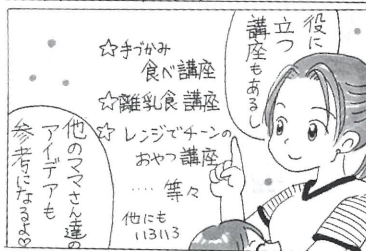 役に
立つ
講座もあるし
☆手づかみ
食べ講座
☆離乳食講座
☆レンジでチーンの
おやつ講座
‥‥等々
他にも
いろいろ
他のママさん達の
アイデアーも
参考になるよ♡